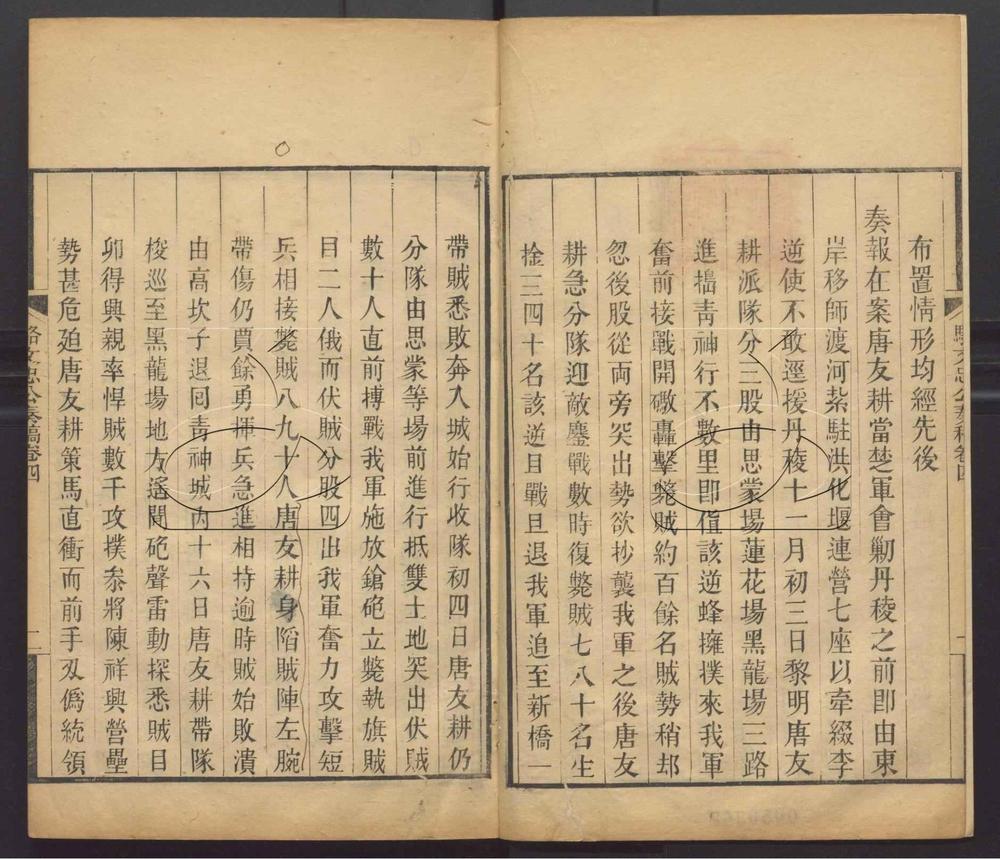 布置情形均經先後
奏報在案唐友耕當楚軍會勦丹稜之前卽由東
岸移師渡河紮駐洪化堰連營七座以牽綴李
逆使不敢逕援丹稜十一月初三日黎明唐友
耕派隊分三股由思蒙場蓮花場黑龍場三路
進搗靑神行不數里卽值該逆蜂擁撲來我軍
奮前接戰開礮轟擊斃賊約百餘名賊勢稍却
忽後股從両旁突出勢欲抄襲我軍之後唐友
耕急分隊迎敵鏖戰數時復斃賊七八十名生
捦三四十名該逆且戰且退我軍追至新橋一
帶賊悉敗奔入城始行收隊初四日唐友耕仍
分隊由思蒙等場前進行抵雙土地突出伏賊
數十人直前搏戰我軍施放鎗砲立斃執旗賊
目二人俄而伏賊分股四出我軍奮力攻擊短
兵相接斃賊八九十人唐友耕身陷賊陣左腕
帶傷仍賈餘勇揮兵急進相持逾時賊始敗潰
由高坎子退囘靑神城內十六日唐友耕帶隊
梭巡至黑龍場地方遙聞砲聲雷動探悉賊目
卯得興親率悍賊數千攻撲叅將陳祥興營壘
勢甚危廹唐友耕策馬直衝而前手刄僞統領
駱文忠公奏稿卷四
一
駱文忠公奏稿卷四
二